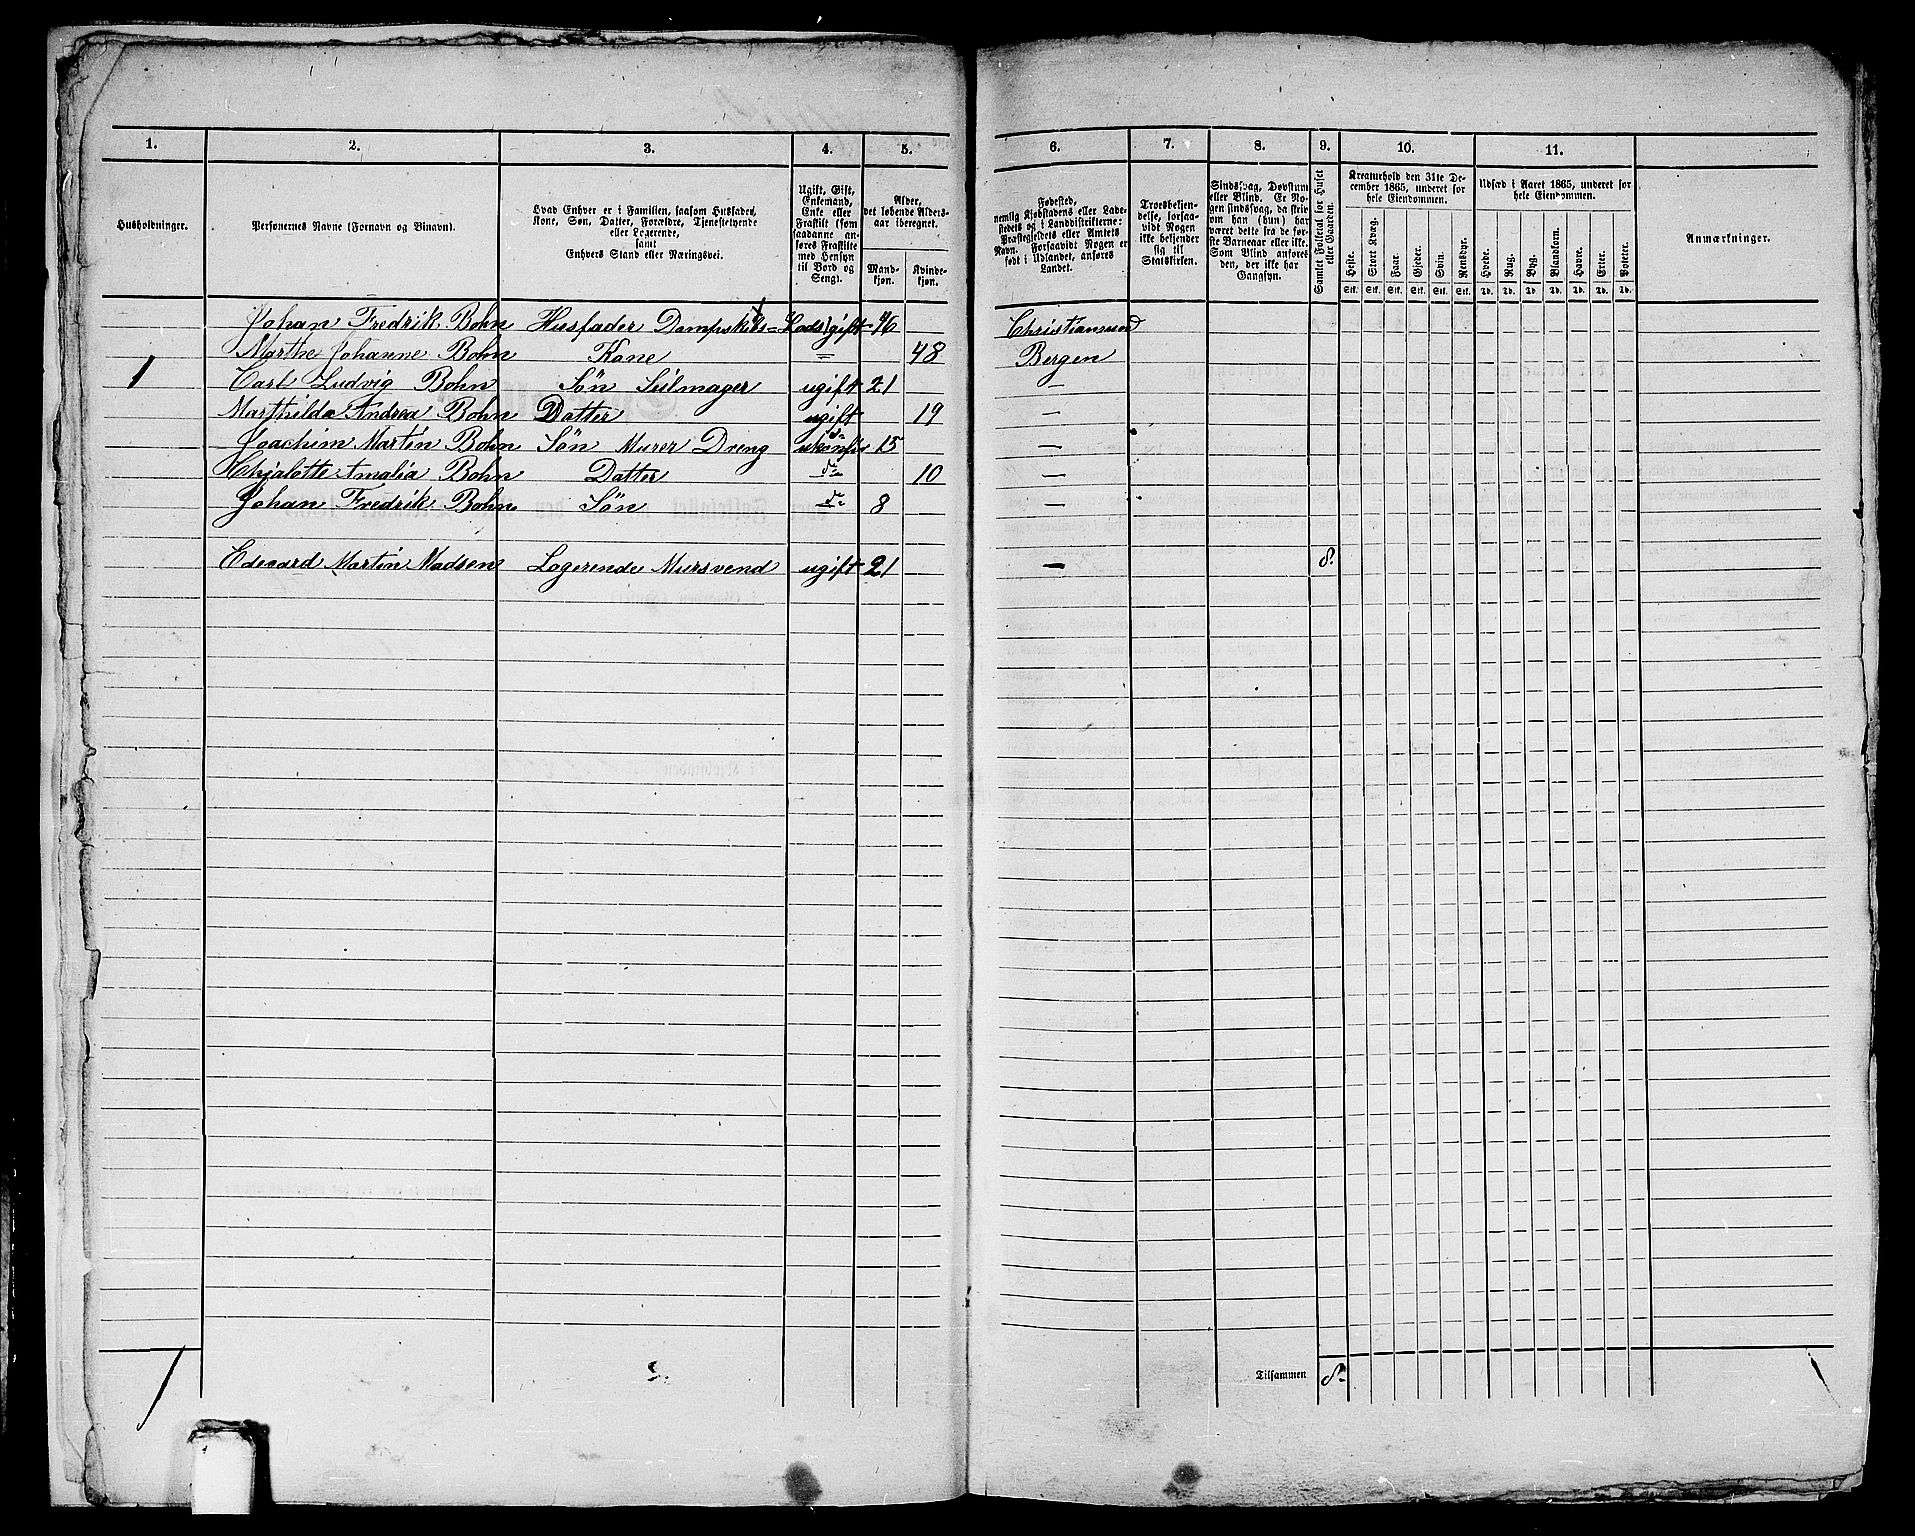 1. 2. 3. 4. 5. 6. 7. 8. 9. 10. 11.
Husholdninger.
Personernes Navne (Fornavn og Binavn).
Hvad Enhver er i Familien, saasom Husfader,
Kone, Søn, Datter, Forældre, Tjenestetyende
eller Logerende,
samt
Enhvers Stand eller Næringsvei.
Ugift, Gift,
Enkemand,
Enke eller
Fraskilt (som
saadanne an-
føres Fraskilte
med Hensyn
til Bord og
Seng).
Alder,
det løbende Alders-
aar iberegnet.
Mand-
kjøn.
Kvinde-
kjøn.
Fødested,
nemlig Kjøbstadens eller Lade-
stedets og i Landdistrikterne:
Præstegjeldets eller Amtets
Navn. Forsaavidt Nogen er
født i Udlandet, anføres
Landet.
Troesbekjen-
delse, forsaa-
vidt Nogen
ikke bekjender
sig til
Statskirken.
Sindssvag, Døvstum
eller Blind. Er No-
gen sindssvag, da skriv
om han (hun) har
været dette fra de før-
ste Barneaar eller ikke.
Som Blind anføres
den, der ikke har
Gangsyn.
Samlet Folketal for Huset
eller Gaarden.
Kreaturhold den 31te De-
cember 1865, underet for
hele Eiendommen.
Heste. Stort Kvæg. Faar. Gjeder. Svin. Rensdyr.
Stk. Stk. Stk. Stk. Stk. Stk.
Udsæd i Aaret 1865, underet for
hele Eiendommen.
Hvede. Rug. Byg. Blandkorn. Havre. Erter. Poteter.
Td. Td. Td. Td. Td. Td. Td.
Anmærkninger.
Johan Fredrik Bohn Husfader Dampskibs=Lods gift 46 Christiansund
Marthe Johanne Bohn Kone = 48 Bergen
1 Carl Ludvig Bohn Søn Seilmager ugift 21 —
Marthilda Andrea Bohn Datter ugift 19 —
Joachim Martin Bohn Søn Murer Dreng 15 —
Amalia Bohn Datter do 10 —
Johan Fredrik Bohn Søn do 8 —
Edvard Martin Madsen Logerende Mursvend ugift 21 — 8.
Tilsammen 8.